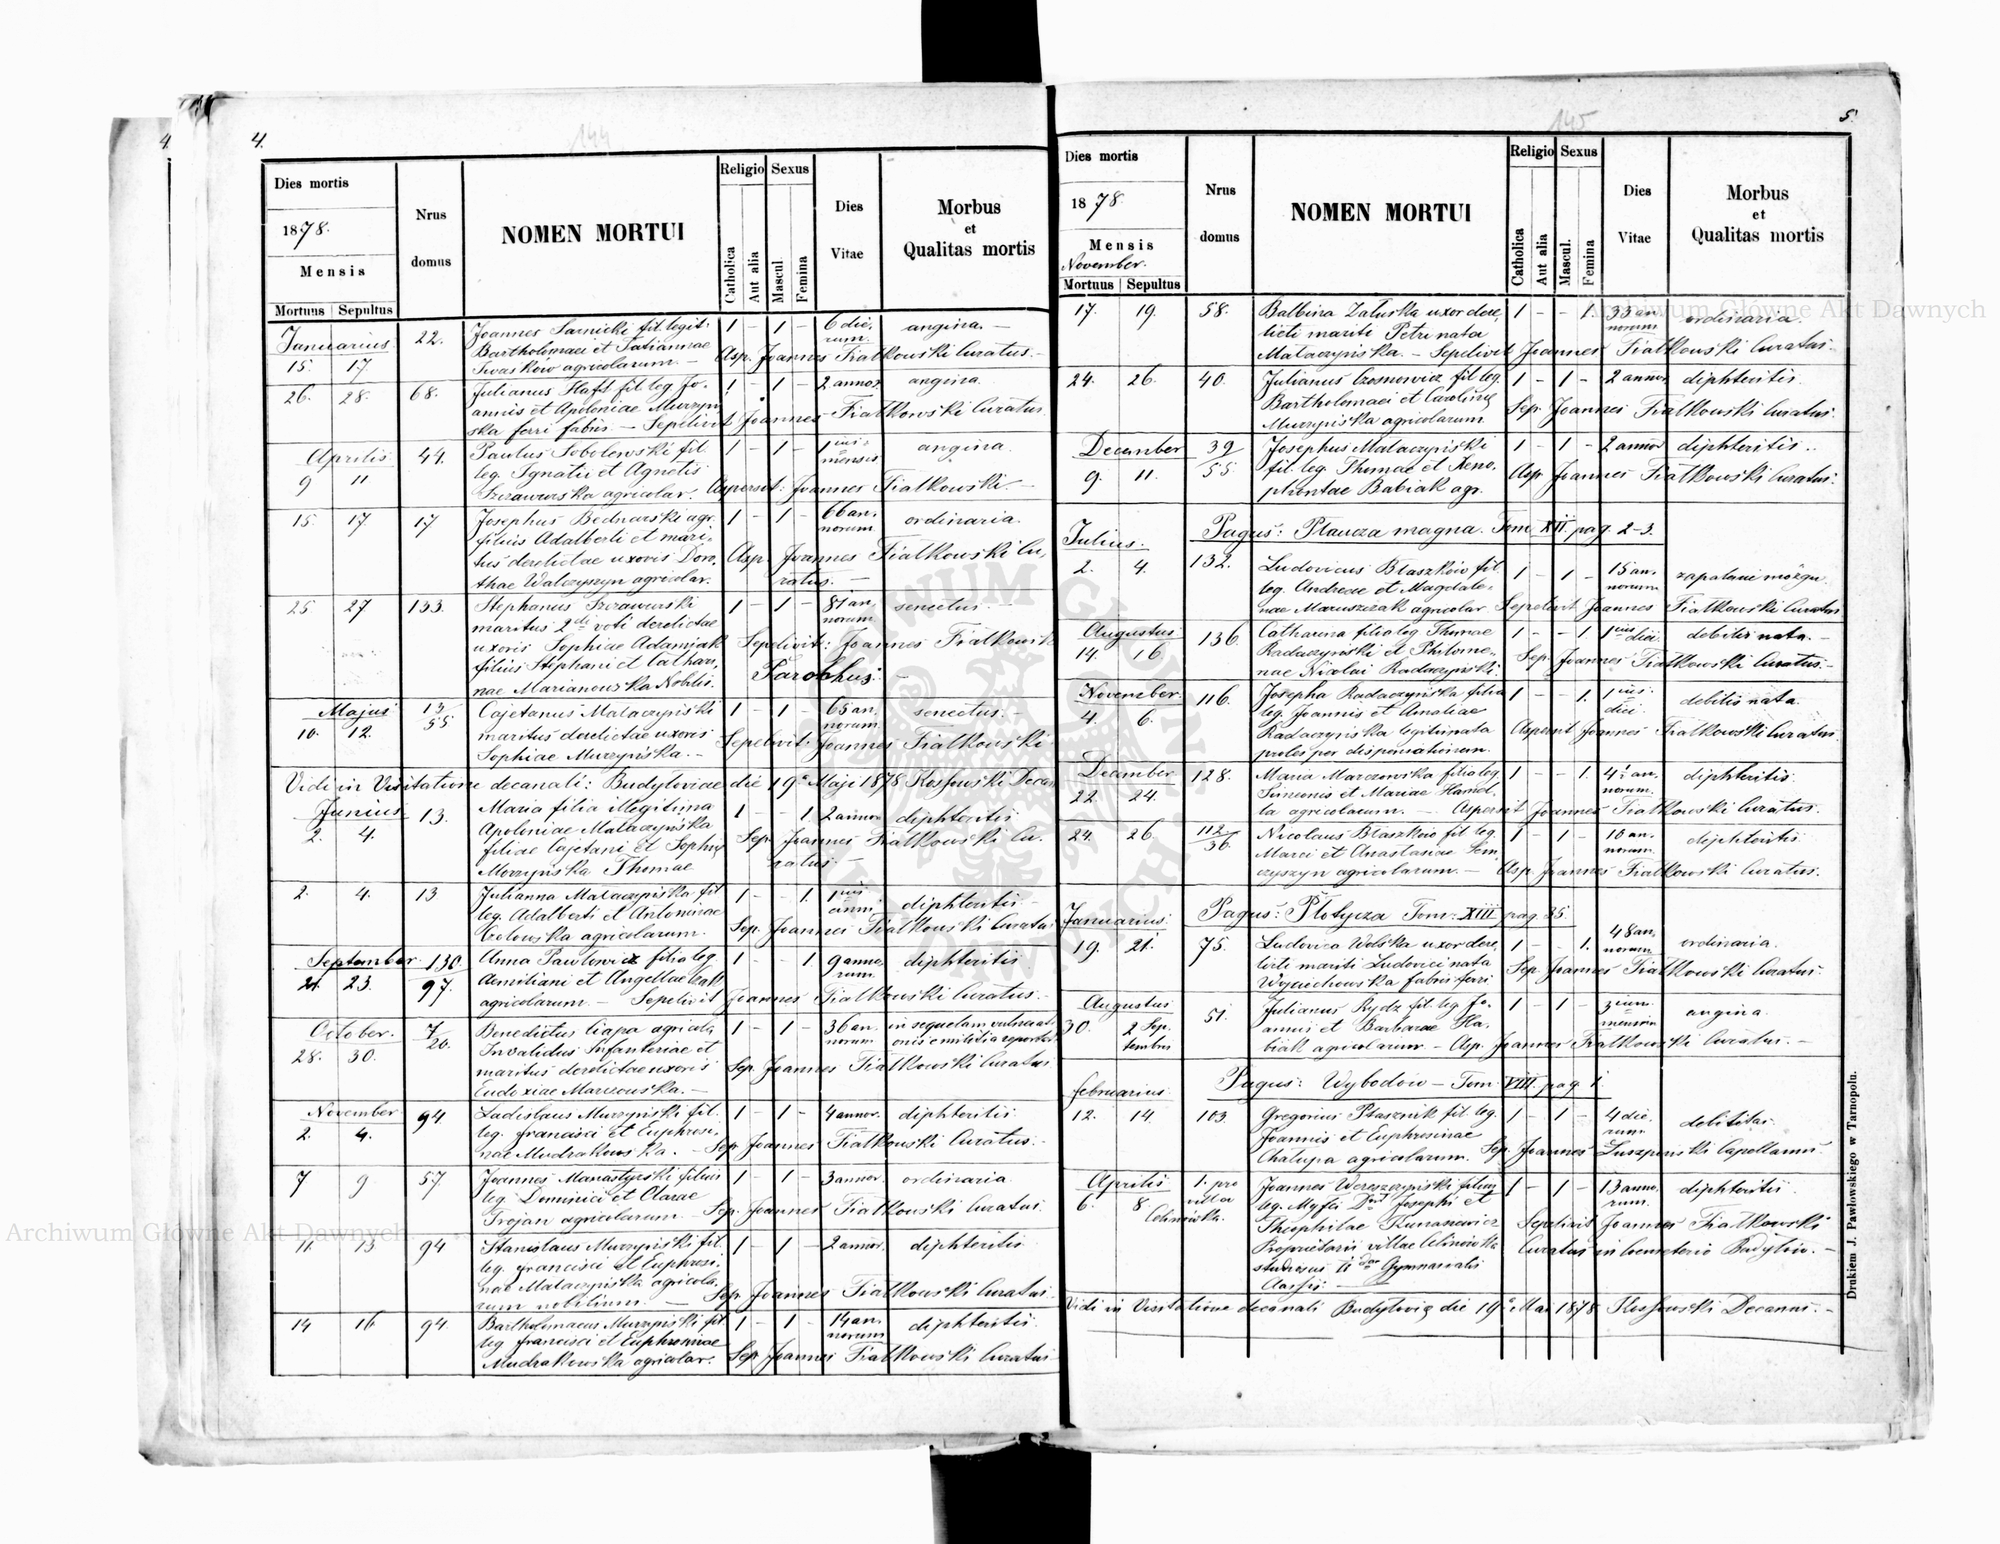 4.
144
Dies mortis
1878.
Mensis
Mortuus Sepultus
Nrus domus
NOMEN MORTUI
Religio
Catholica
Aut alia
Sexus
Mascul
Femina
Dies Vitae
Morbus
et
Qualitas mortis
Januarius
15. 17.
22.
Joannes Sarnicki fil. legit.
Bartholomaei et Tatiannae
Iwaskow agricolarum. —
1 – 1 –
6 die,
rum.
angina. —
Asp. Joannes Fiałkowski Curatus. –
26. 28. 68.
Julianus Haft fil. leg. Jo,
annis et Apoloniae Murzyń
ska ferri fabri. — Sepelivit Joannes Fiałkowski Curatus
1 – 1 –
2 annor
angina.
Aprilis
9 11
44.
Paulus Sobolewski fil.
leg. Ignatii et Agnetis
Szczawurska agricolar. Aspersit: Joannes Fiałkowski —
1 – 1 –
1 ius
mensis
angina.
15. 17. 17
Josephus Bednarski agr.
filius Adalberti et mari,
tus derelictae uxoris Doro,
thae Walczyszyn agricolar.
1 – 1 –
66 an,
norum
ordinaria.
Asp. Joannes Fiałkowski Cu,
ratus. —
25. 27 133.
Stephanus Szczawurski
maritus 2di voti derelictae
uxoris Sophiae Adamiak
filius Stephani et Cathari,
nae Marianowska Nobilis.
1 – 1 –
81 an,
norum
senectus. —
Sepelivit: Joannes Fiałkowski
Parochus. —
Majus
10. 12.
13/55
Cajetanus Małaczyński
maritus derelictae uxoris
Sophiae Murzyńska. —
1 – 1 –
65 an,
norum
senectus. —
Sepelivit: Joannes Fiałkowski
Vidi in Visitatione decanali: Budyloviae die 19a Maji 1878 Rossowski Decan
Junius
2. 4.
13.
Maria filia illegitima
Apoloniae Małaczyńska
filiae Cajetani et Sophiae
Morzyńska Thomae
1 – – 1.
2 annor
diphteritis
Sep. Joannes Fiałkowski Cu,
ratus. —
2. 4. 13
Julianna Małaczyńska fil
leg. Adalberti et Antoninae
Czolowska agricolarum.
1 – – 1.
1 ius
anni.
diphteritis —
Sep. Joannes Fiałkowski Curatus
September
21. 23.
130/97.
Anna Pawłowicz filia leg.
Aemiliani et Angellae
agricolarum — Sepelivit Joannes Fiałkowski Curatus. –
1 – – 1.
9 anno,
rum
diphteritis
October.
28. 30.
7/20.
Benedictus Ciapa agricola
Invalidus Infanteriae et
maritus derelictae uxoris
Eudoxiae Marcowska. —
1 – 1 –
36 an,
norum
in sequelam vulnerati,
onis e militia reportat
Sep. Joannes Fiałkowski Curatus
November
2. 4.
94.
Ladislaus Murzyński fil.
leg. Francisci et Euphrosi,
nae Mudrakowska. — Sep. Joannes Fiałkowski Curatus. –
1 – 1 –
4 annor.
diphteritis
7 9 57.
Joannes Manastyrski filius
leg. Dominici et Clarae
Trojan agricolarum — Sep. Joannes Fiałkowski Curatus
1 – 1 –
3 annor.
ordinaria
11. 13 94
Stanislaus Murzyński fil.
leg. Francisci et Euphrosi,
nae Małaczyńska agricola,
rum nobilium. — Sep. Joannes Fiałkowski Curatus.
1 – 1 –
2 annor.
diphteritis
14 16 94.
Bartholomaeus Murzyński fil.
leg. Francisci et Euphrosinae
Mudrakowska agricolar.
1 – 1 –
14 an,
norum
diphteritis.
Sep. Joannes Fiałkowski Curatus –
5.
145
Dies mortis
1878.
Mensis
November.
Mortuus Sepultus
Nrus domus
NOMEN MORTUI
Religio
Catholica
Aut alia
Sexus
Mascul.
Femina
Dies Vitae
Morbus
et
Qualitas mortis
17. 19. 58.
Balbina Załuska uxor dere,
licti mariti Petri nata
Małaczyńska. – Sepelivit Joannes Fiałkowski Curatus. –
1 – – 1.
33 an,
norum
ordinaria.
24. 26. 40.
Julianus Czosnowicz fil. leg.
Bartholomaei et Carolinae
Murzyńska agricolarum
1 – 1 –
2 annor
diphteritis.
Sep. Joannes Fiałkowski Curatus.
December
9. 11.
39/55.
Josephus Małaczyński
fil. leg. Thomae et Xeno,
phontae Babiak agr.
1 – 1 –
2 annor
diphteritis ..
Asp. Joannes Fiałkowski Curatus.
Pagus: Płaucza magna. Tom. XII. pag. 2–3.
Julius.
2. 4.
132.
Ludovicus Błaszków fil.
leg. Andreae et Magdale,
nae Maruszczak agricolar. Sepelivit Joannes Fiałkowski Curatus
1 – 1 –
15 an,
norum
zapalanie mózgu.
Augustus
14. 16
136.
Catharina filia leg. Thomae
Radaczyński et Philome,
nae Nicolai Radaczyński.
1 – – 1.
1 ius
diei.
debilis nata. —
Sep. Joannes Fiałkowski Curatus. –
November.
4. 6.
116.
Josepha Radaczyńska filia
leg. Joannis et Amaliae
Radaczyńska legitimata
proles per dispensationem.
1 – – 1.
1 ius
diei
debilis nata
Aspersit Joannes Fiałkowski Curatus.
December
22. 24.
128.
Maria Marczowska filia leg.
Simeonis et Mariae
agricolarum. — Aspersit Joannes Fiałkowski Curatus.
1 – – 1.
4 an,
norum.
diphteritis.
24. 26. 112/36.
Nicolaus Błaszków fil. leg.
Marci et Anastasiae Sem,
czyszyn agricolarum. — Asp. Joannes Fiałkowski Curatus.
1 – 1 –
10 an,
norum.
diphteritis
Pagus: Płotycza Tom: XIII. pag. 35.
Januarius.
19. 21.
75.
Ludovica Wolska uxor dere,
licti mariti Ludovici nata
Wyciechowska fabri ferri
1 – – 1.
48 an,
norum.
ordinaria.
Sep. Joannes Fiałkowski Curatus.
Augustus
30. 2 Sep.
tembris
51.
Julianus Rydz fil. leg. Jo,
annis et Barbarae Ha,
biak agricolarum – Asp. Joannes Fiałkowski Curatus. –
1 – 1 –
3 ium
mensium
angina.
Pagus: Wybodów – Tom. VIII. pag. 1.
Februarius
12. 14.
103.
Gregorius Ptasznik fil. leg.
Joannis et Euphrosinae
Chałupa agricolarum. Sep. Joannes Luszpinski Capellanus.
1 – 1 –
4 die,
rum.
debilitas.
Aprilis
6. 8.
1. pro
villa
Celinówka.
Joannes Wereszczyński filius
leg. Mgfci Dni Josephi et
Theophilae Kunasiewicz
Proprietarii villae Celinówka
studiosus II dae Gymnasialis
Classis. —
1 – 1 –
13 anno,
rum.
diphteritis.
Sepelivit Joannes Fiałkowski
Curatus in Coemeterio Budyłow. –
Vidi in Visitatione decanali Budyloviae die 19a Mai 1878 Rossowski Decanus. –
Drukiem J. Pawłowskiego w Tarnopolu.
Archiwum Główne Akt Dawnych
Archiwum Główne Akt Dawnych